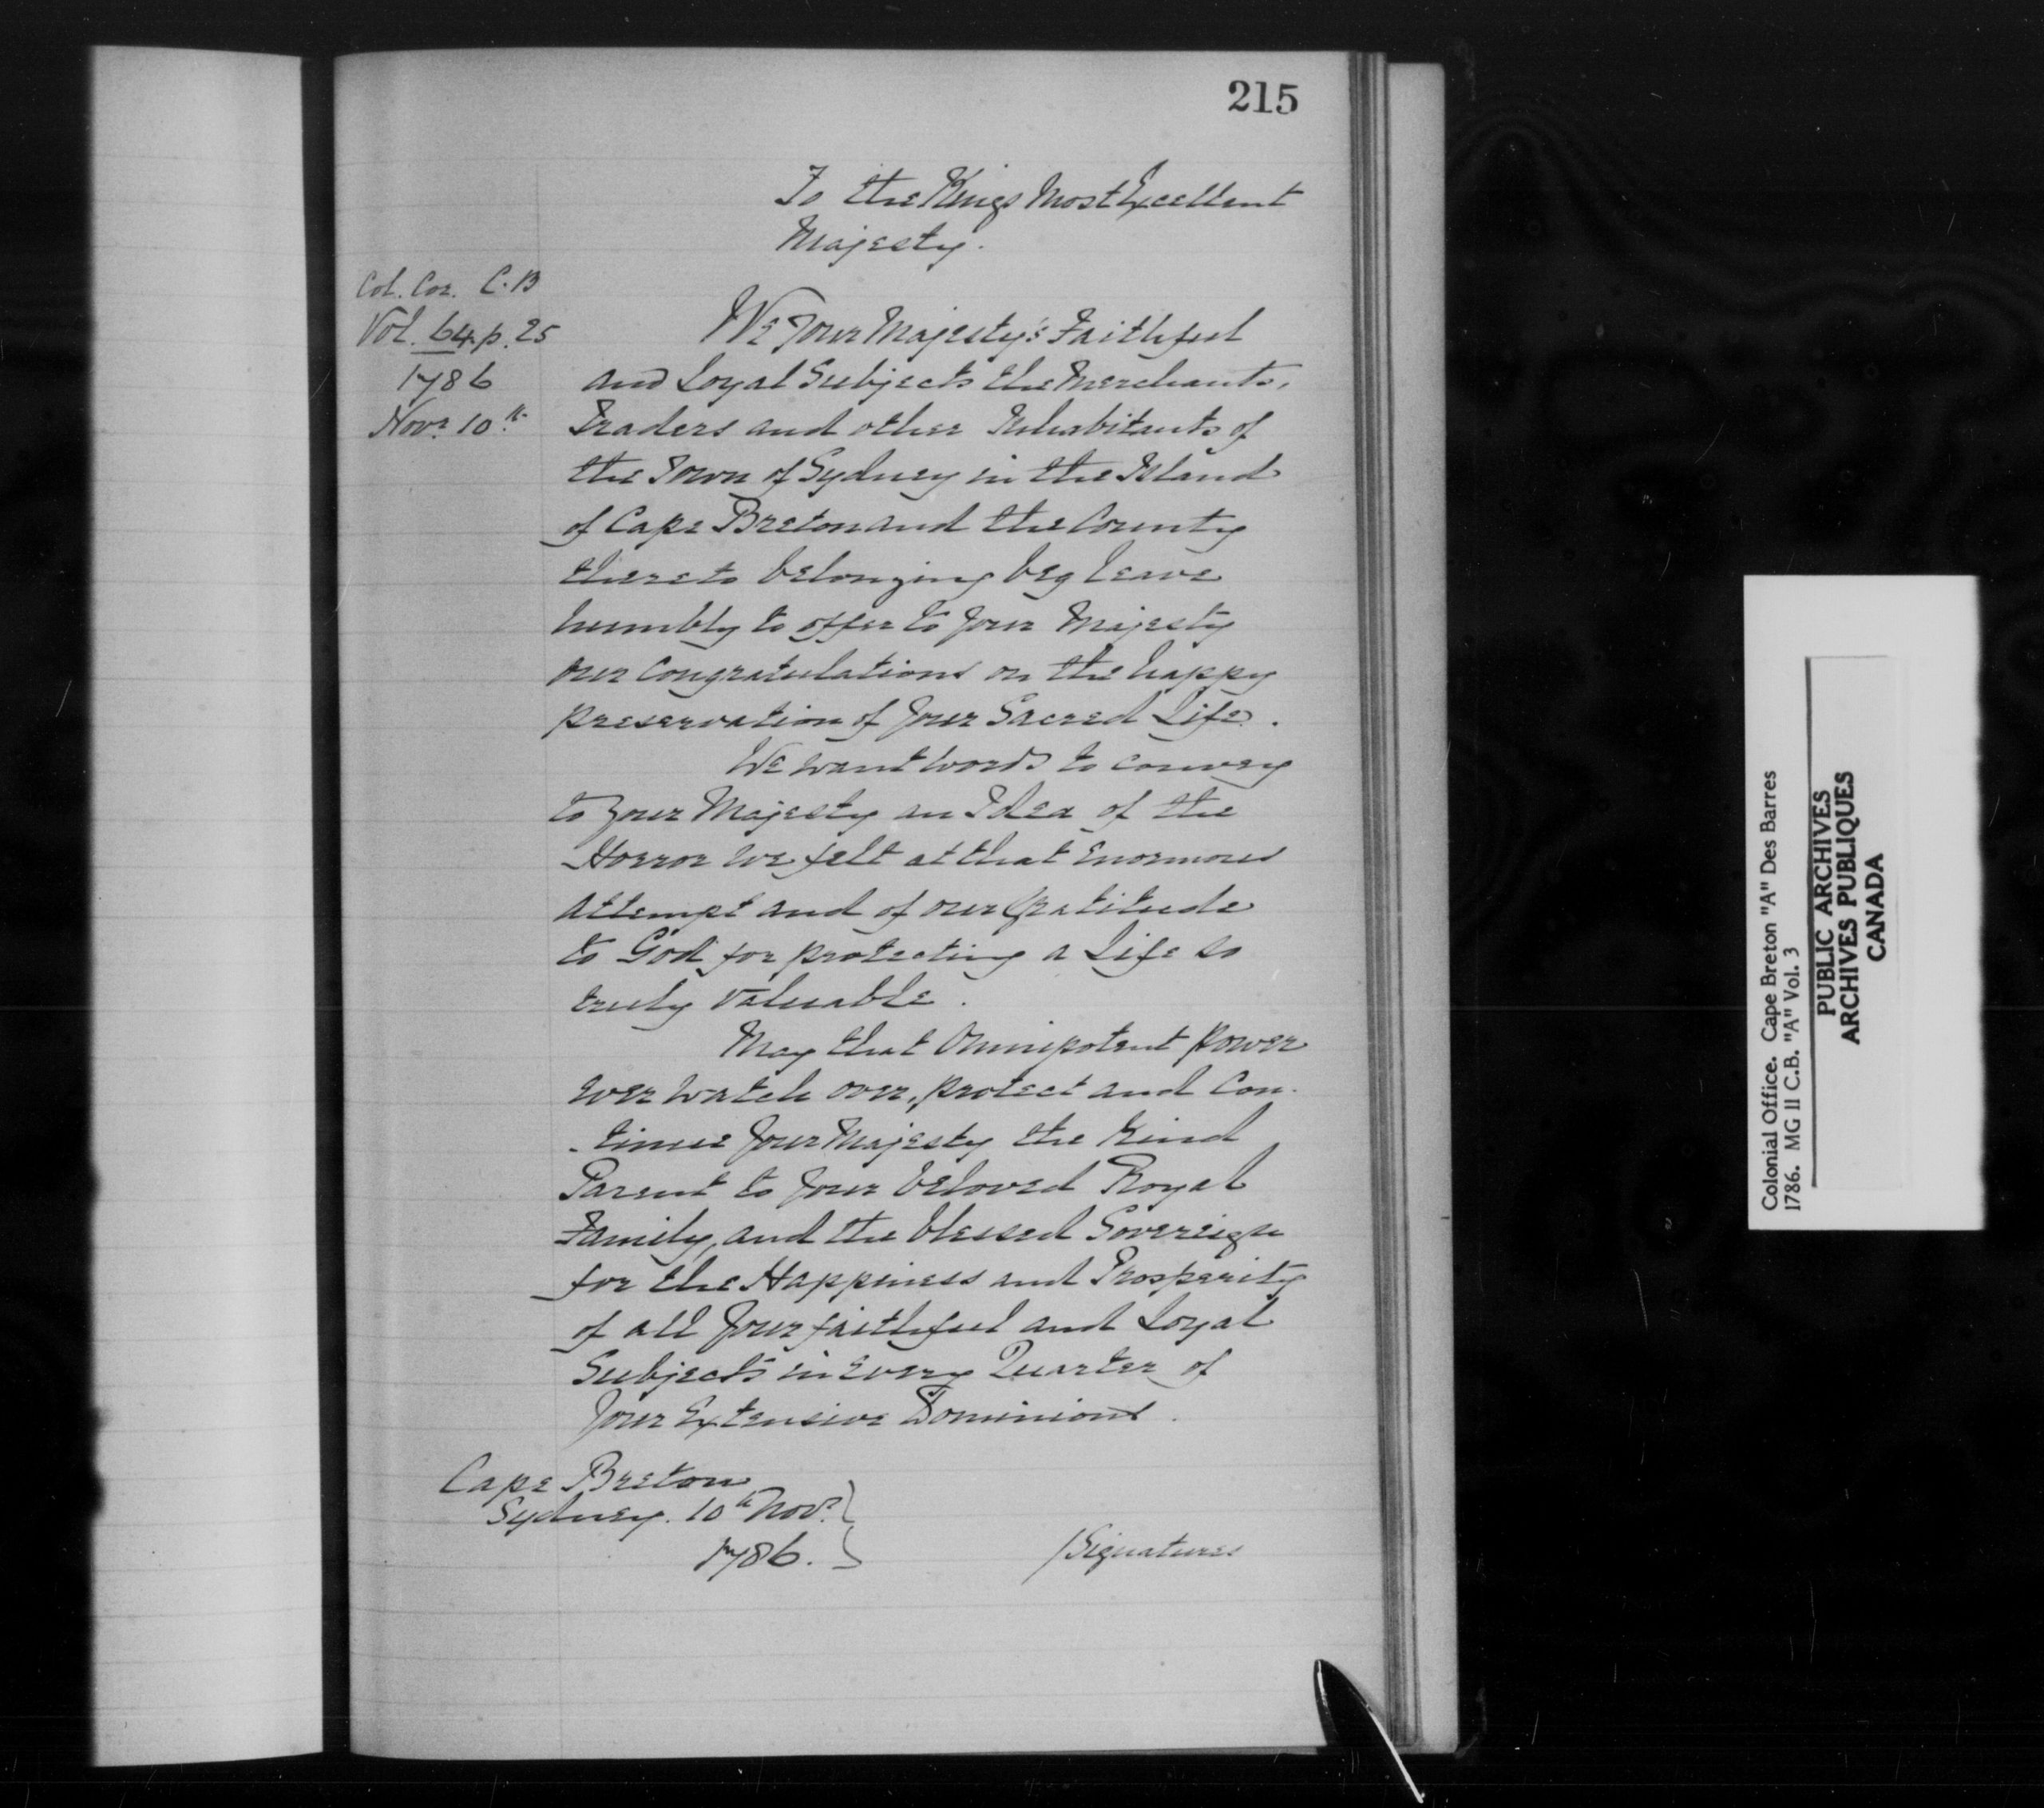 215
To the Kings Most Excellent
Majesty.
Col. Cor. C.B
Vol. 64. p. 25
1786
Novr. 10th
We Your Majesty's Faithful
and Loyal Subjects the Merchants,
Traders and other Inhabitants of
the Town of Sydney in the Island
of Cape Breton and the County
thereto belonging beg leave
humbly to offer to Your Majesty
our Congratulations on the happy
preservation of Your Sacred Life.
We want words to convey
to Your Majesty an Idea of the
Horror we felt at that Enormous
attempt and of our Gratitude
to God for protecting a Life so
truly valuable.
May that Omnipotent Power
ever watch over, protect and Con-
-tinue Your Majesty the Kind
Parent to Your beloved Royal
Family, and the blessed Sovereign
for the Happiness and Prosperity
of all Your faithful and Loyal
Subjects in every Quarter of
Your Extensive Dominions.
Cape Breton
Sydney. 10th Novr.
1786.
/Signatures
Colonial Office. Cape Breton "A" Des Barres
1786. MG II C.B. "A" Vol. 3
PUBLIC ARCHIVES
ARCHIVES PUBLIQUES
CANADA